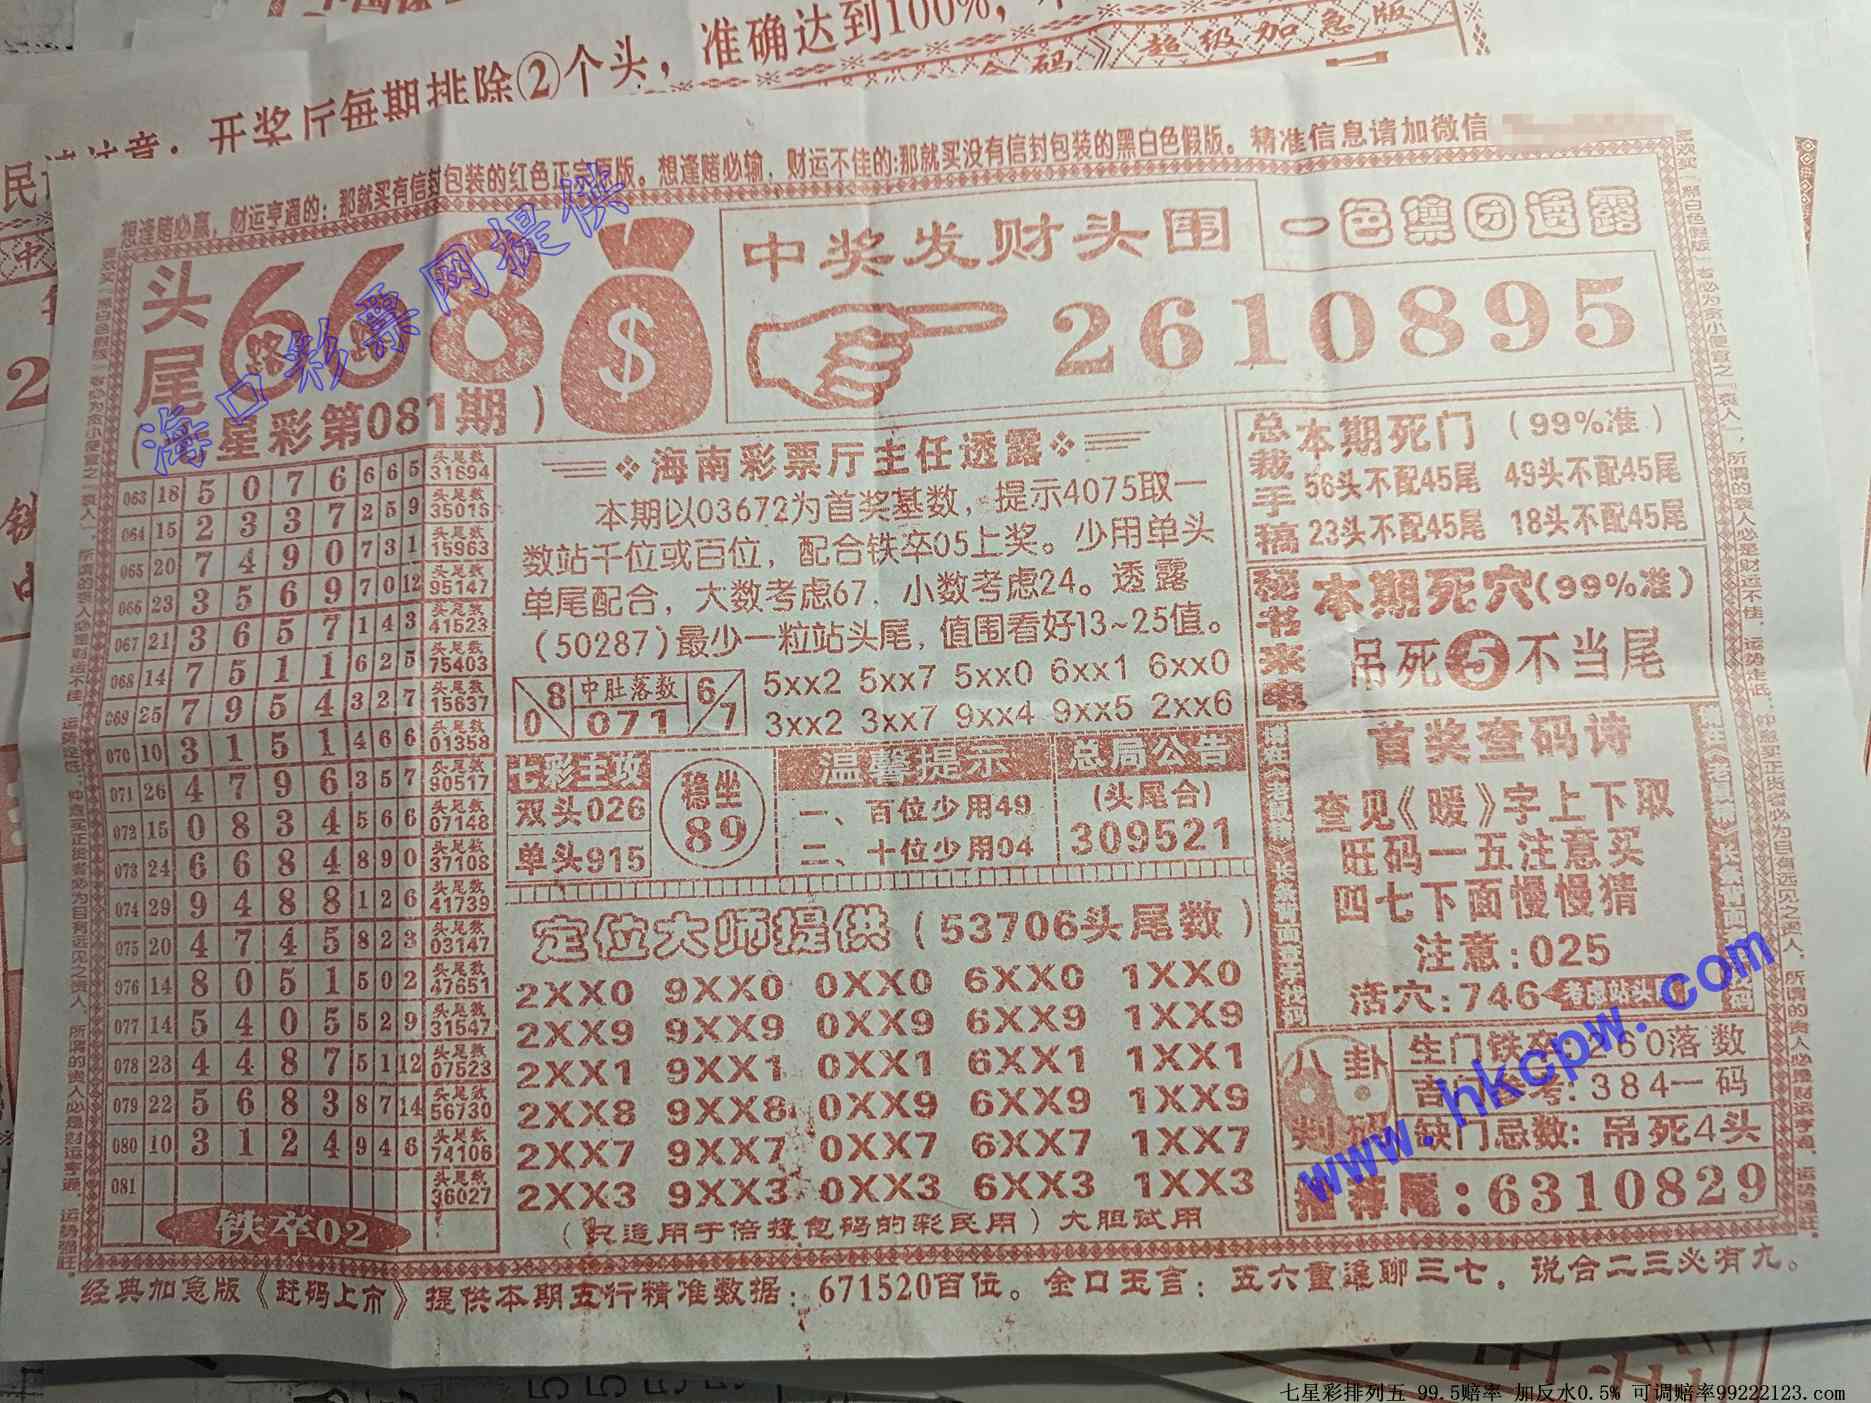 开奖厅每期排除②个头，准确达到100%，
超级加急版
想逢赌必赢，财运亨通的：那就买有信封包装的红色正宗原版。想逢赌必输，财运不佳的:那就买没有信封包装的黑白色假版。精准信息请加微信
头尾
668
(七星彩第081期)
$
中奖发财头围
一色集团透露
2610895
063 18 5 0 7 6 6 6 5 头尾数 31694
064 15 2 3 3 7 2 5 9 头尾数 35016
065 20 7 4 9 0 7 3 1 头尾数 15963
066 23 3 5 6 9 7 0 12 头尾数 95147
067 21 3 6 5 7 1 4 3 头尾数 41523
068 14 7 5 1 1 6 2 5 头尾数 75403
069 25 7 9 5 4 3 2 7 头尾数 15637
070 10 3 1 5 1 4 6 6 头尾数 01358
071 26 4 7 9 6 3 5 7 头尾数 90517
072 15 0 8 3 4 5 6 6 头尾数 07148
073 24 6 6 8 4 8 9 0 头尾数 37108
074 29 9 4 8 8 1 2 6 头尾数 41739
075 20 4 7 4 5 8 2 3 头尾数 03147
976 14 8 0 5 1 5 0 2 头尾数 47651
077 14 5 4 0 5 5 2 9 头尾数 31547
078 23 4 4 8 7 5 1 12 头尾数 07523
079 22 5 6 8 3 8 7 14 头尾数 56730
080 10 3 1 2 4 9 4 6 头尾数 74106
081 头尾数 36027
铁卒02
海南彩票厅主任透露
本期以03672为首奖基数，提示4075取一
数站千位或百位，配合铁卒05上奖。少用单头
单尾配合，大数考虑67，小数考虑24。透露
(50287)最少一粒站头尾，值围看好13~25值。
0/8 中肚落数 071 6/7
5xx2 5xx7 5xx0 6xx1 6xx0
3xx2 3xx7 9xx4 9xx5 2xx6
七彩主攻
双头026
单头915
稳坐
89
温馨提示
一、百位少用49
二、十位少用04
总局公告
(头尾合)
309521
定位大师提供(53706头尾数)
2XX0 9XX0 0XX0 6XX0 1XX0
2XX9 9XX9 0XX9 6XX9 1XX9
2XX1 9XX1 0XX1 6XX1 1XX1
2XX8 9XX8 0XX9 6XX9 1XX9
2XX7 9XX7 0XX7 6XX7 1XX7
2XX3 9XX3 0XX3 6XX3 1XX3
(只适用于倍投包码的彩民用)大胆试用
总裁手稿
本期死门(99%准)
56头不配45尾 49头不配45尾
23头不配45尾 18头不配45尾
秘书来电
本期死穴(99%准)
吊死5不当尾
首奖查码诗
查见《暖》字上下取
旺码一五注意买
四七下面慢慢猜
注意:025
活穴:746
考虑站头
八卦判码
生门铁卒 260落数
384一码
缺门忌数: 吊死4头
推荐尾:6310829
经典加急版《赶码上市》提供本期五行精准数据：671520百位。金口玉言：五六重逢聊三七，说合二三必有九。
海口彩票网提供
www.hkcpw.com
七星彩排列五 99.5赔率 加反水0.5% 可调赔率99222123.com